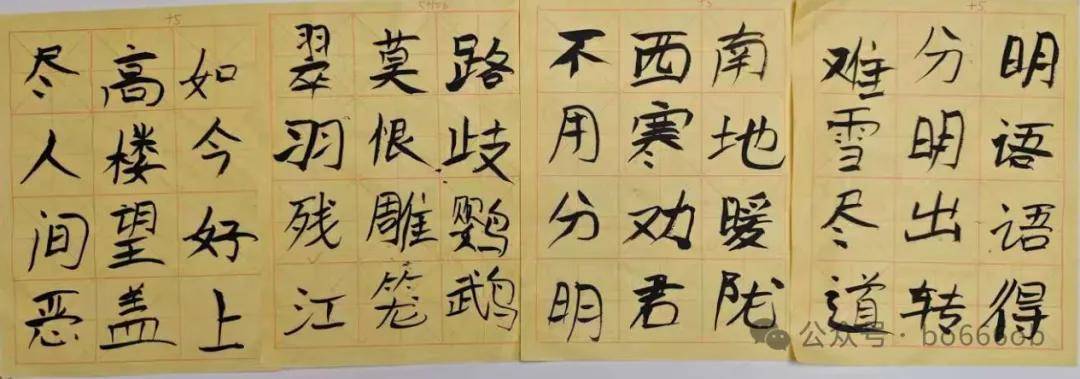 如今好上
高楼望盖
尽人间恶
路歧鹦鹉
莫恨雕笼
翠羽残江
南地暖陇
西寒劝君
不用分明
明语语得
分明出转
难雪尽道
+5
+5
公众号 · bo666ob